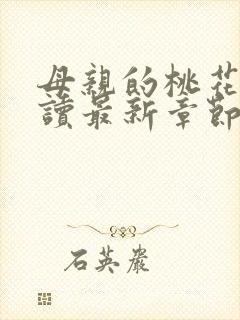 母親的桃花
讀最新章節
石英嚴